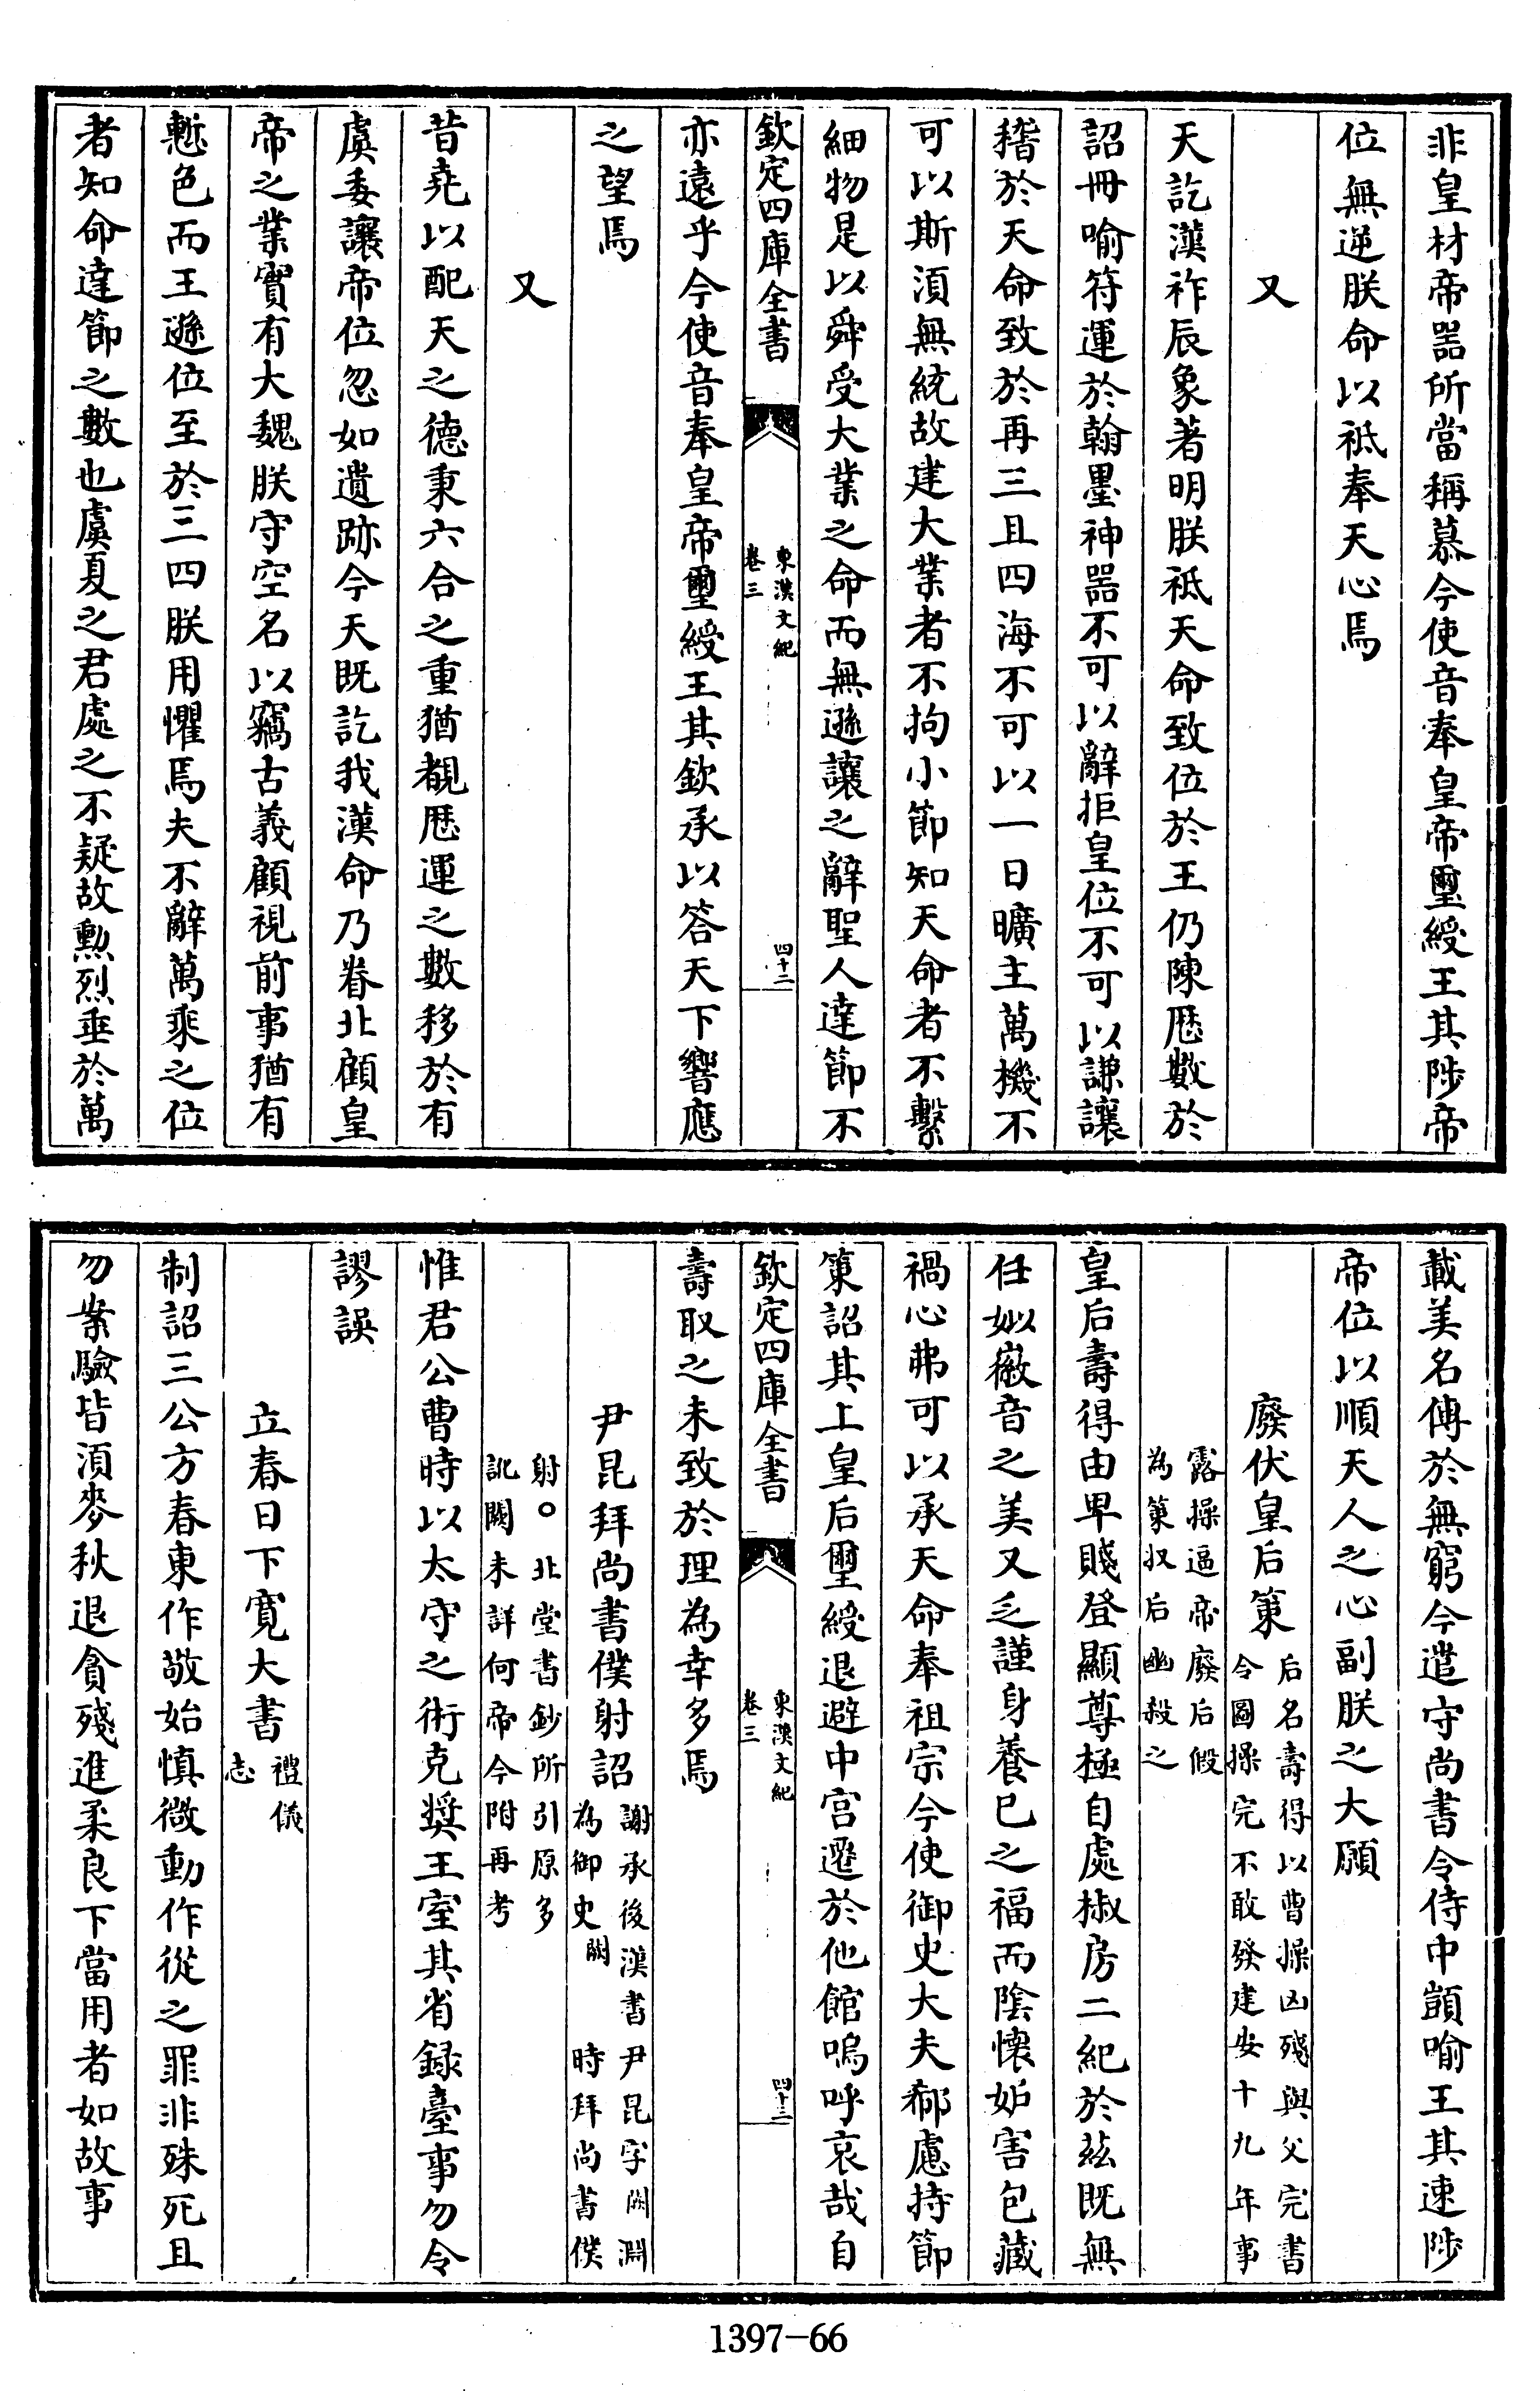 非皇材帝器所當稱慕今使音奉皇帝璽綬王其陟帝
位無逆朕命以祗奉天心焉
又
天訖漢祚辰象著明朕祗天命致位於王仍陳厯數於
詔冊喻符運於翰墨神器不可以辭拒皇位不可以謙讓
稽於天命致於再三且四海不可以一日曠主萬機不
可以斯須無統故建大業者不拘小節知天命者不繫
細物是以舜受大業之命而無遜讓之辭聖人達節不
欽定四庫全書
東漢文紀
卷三
四十二
亦遠乎今使音奉皇帝璽綬王其欽承以答天下響應
之望焉
又
昔堯以配天之德秉六合之重猶覩厯運之數移於有
虞委讓帝位忽如遺跡今天既訖我漢命乃眷北顧皇
帝之業實有大魏朕守空名以竊古義顧視前事猶有
慙色而王遜位至於三四朕用懼焉夫不辭萬乘之位
者知命達節之數也虞夏之君處之不疑故勲烈垂於萬
載美名傳於無窮今遣守尚書令侍中顗喻王其速陟
帝位以順天人之心副朕之大願
廢伏皇后策
后名壽得以曹操凶殘與父完書
令圖操完不敢發建安十九年事
露操逼帝廢后假
為策収后幽殺之
皇后壽得由卑賤登顯尊極自處椒房二紀於兹既無
任姒徽音之美又乏謹身養已之福而陰懷妒害包藏
禍心弗可以承天命奉祖宗今使御史大夫郗慮持節
策詔其上皇后璽綬退避中宫遷於他館嗚呼哀哉自
欽定四庫全書
東漢文紀
卷三
四十三
壽取之未致於理為幸多焉
尹昆拜尚書僕射詔
謝承後漢書尹昆字闕淵
為御史闕時拜尚書僕
射○北堂書鈔所引原多
訛闕未詳何帝今附再考
惟君公曹時以太守之術克奬王室其省録臺事勿令
謬誤
立春日下寛大書
禮儀
志
制詔三公方春東作敬始慎微動作從之罪非殊死且
勿案驗皆須麥秋退貪殘進柔良下當用者如故事
1397-66